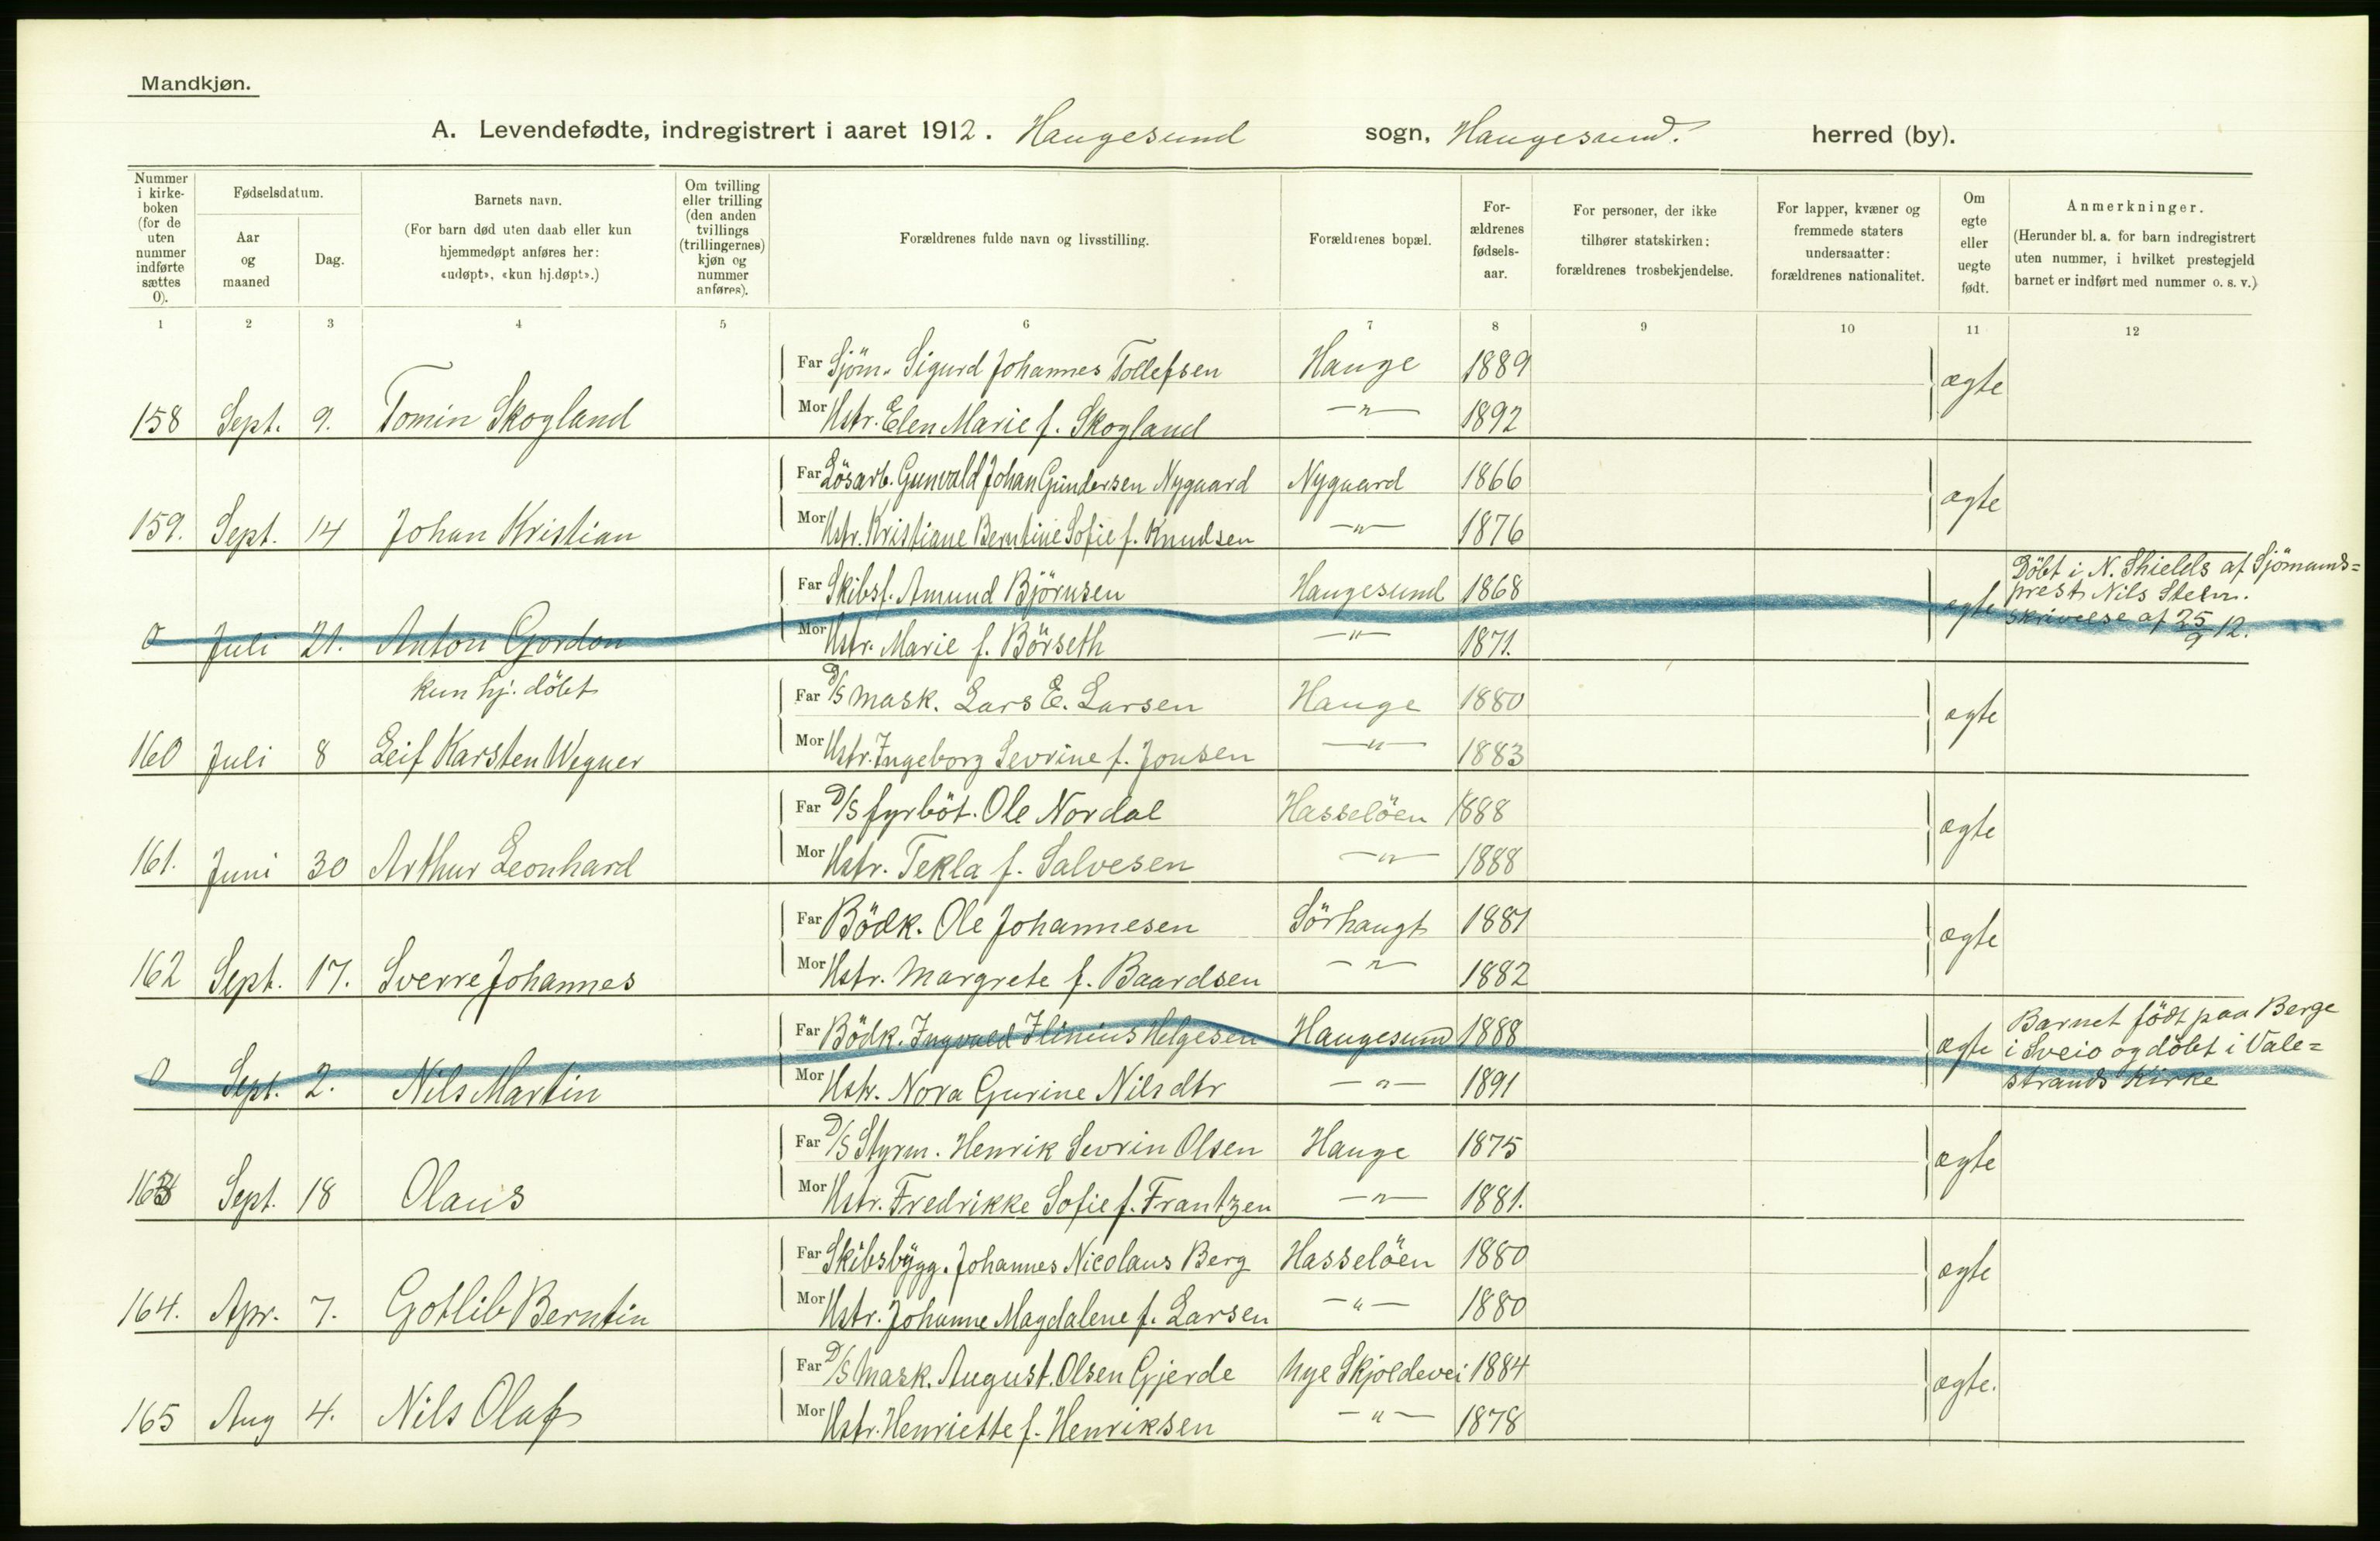 Mandkjøn.
A. Levendefødte, indregistrert i aaret 1912. Haugesund sogn, Haugesund. herred (by).
Nummer i kirke-boken (for de uten nummer indførte sættes 0).
Fødselsdatum.
Aar og maaned
Dag.
Barnets navn.
(For barn død uten daab eller kun hjemmedøpt anføres her: «udøpt», «kun hj.døpt».)
Om tvilling eller trilling (den anden tvillings (trillingernes) kjøn og nummer anføres).
Forældrenes fulde navn og livsstilling.
Forældrenes bopæl.
For-ældrenes fødsels-aar.
For personer, der ikke tilhører statskirken: forældrenes trosbekjendelse.
For lapper, kvæner og fremmede staters undersaatter: forældrenes nationalitet.
Om egte eller uegte født.
Anmerkninger.
(Herunder bl. a. for barn indregistrert uten nummer, i hvilket prestegjeld barnet er indført med nummer o. s. v.)
1 2 3 4 5 6 7 8 9 10 11 12
Far Sjöm. Sigurd Johannes Tollefsen Hauge 1889 ægte
158 Sept. 9. Tomin Skogland Mor Hstr. Elen Marie f. Skogland —"— 1892
Far Lösarb. Gunvald Johan Gundersen Nygaard Nygaard 1866 ægte
159. Sept. 14 Johan Kristian Mor Hstr. Kristiane Berntine Sofie f. Knudsen —"— 1876
Far Skibsf. Amund Björnsen Haugesund 1868 ægte Döbt i N. Shields af Sjömands=
prest Nils Steen.
skrivelse af 25/9 12.
0 Juli 21. Anton Gordon Mor Hstr. Marie f. Börseth —"— 1871.
kun hj. döbt Far D/S mask. Lars E. Larsen Hauge 1880 ægte
160 Juli 8 Leif Karsten Wegner Mor Hstr. Ingeborg Sevrine f. Jonsen —"— 1883
Far D/S fyrböt. Ole Nordal Hasselöen 1888 ægte
161. Juni 30 Arthur Leonhard Mor Hstr. Tekla f. Salvesen —"— 1888
Far Bödk. Ole Johannesen Sörhaugt 1881 ægte
162 Sept. 17. Sverre Johannes Mor Hstr. Margrete f. Baardsen —"— 1882
Far Bödk. Ingvald Helgesen Haugesund 1888 ægte Barnet födt paa Berge
i Sveio og döbt i Vale=
strands Kirke
0 Sept. 2. Nils Martin Mor Hstr. Nora Gurine Nilsdtr —"— 1891
Far D/S Styrm. Henrik Sevrin Olsen Hauge 1875 ægte
163 Sept. 18 Olaus Mor Hstr. Fredrikke Sofie f. Frantzen —"— 1881.
Far Skibsbygg. Johannes Nicolaus Berg Hasselöen 1880 ægte
164. Apr. 7. Gotlib Berntin Mor Hstr. Johanne Magdalene f. Larsen —"— 1880
Far D/S Mask. August Olsen Gjerde Nye Skjoldevei 1884 ægte.
165 Aug 4. Nils Olaf Mor Hstr. Henriette f. Henriksen —"— 1878